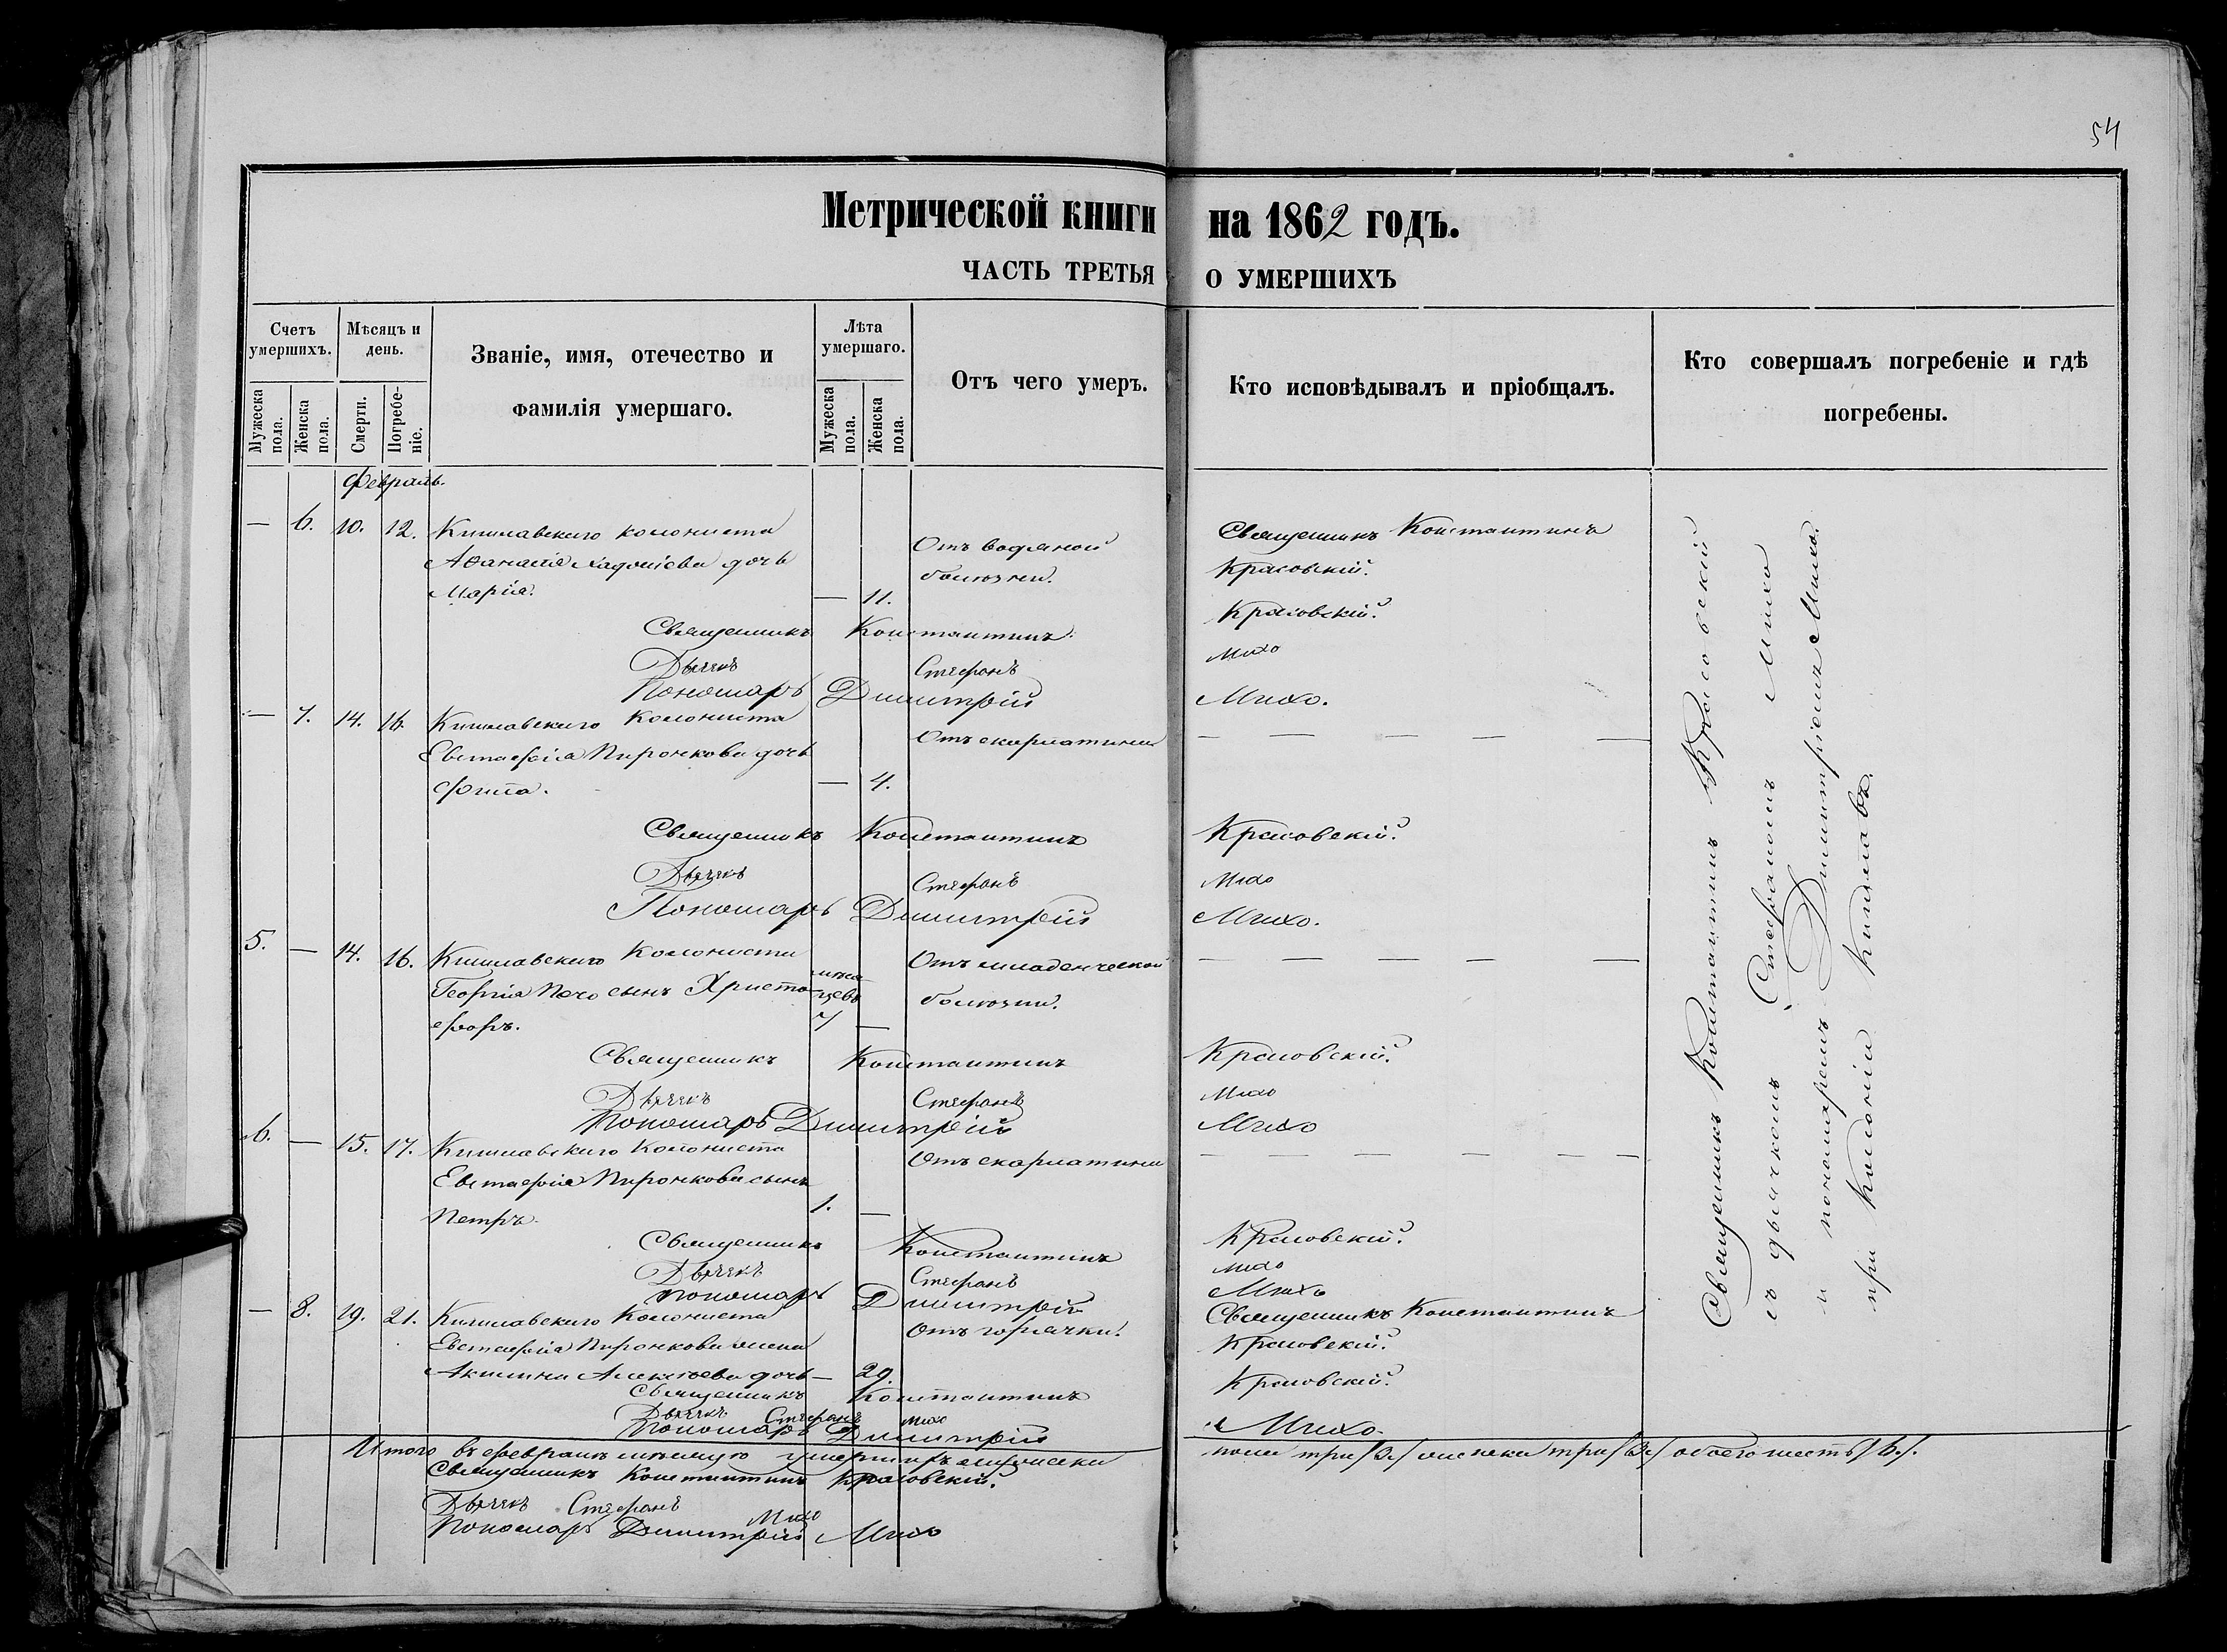 54
Метрической книги на 1862 годъ.
ЧАСТЬ ТРЕТЬЯ О УМЕРШИХЪ
Счетъ умершихъ.
Мужеска пола.
Женска пола.
Мѣсяцъ и день.
Смерти.
Погребеніе.
Званіе, имя, отечество и
фамилія умершаго.
Лѣта умершаго.
Мужеска пола.
Женска пола.
Отъ чего умеръ.
Кто исповѣдывалъ и пріобщалъ.
Кто совершалъ погребеніе и гдѣ
погребены.
Февраль.
— 6. 10. 12. Кишлавскаго колониста Священникъ Константинъ
Отъ водяной
Аѳанасія дочь болѣзни. Красовскій.
Марія. — 11.
Священникъ Константинъ Красовскій.
Дьячекъ Стефанъ Михо
Пономарь Димитрій Михо.
— 7. 14. 16. Кишлавскаго Колониста Отъ скарлатины — — — —
Евстафія Пиронкова дочь
Фота. — 4.
Священникъ Константинъ Красовскій.
Дьячекъ Стефанъ Михо
Пономарь Димитрій Михо.
5. — 14. 16. Кишлавскаго Колониста Отъ младенческой — — — —
Георгія Печо сынъ Христо- мѣся-цевъ болѣзни.
форъ. 7 —
Священникъ Константинъ Красовскій.
Дьячекъ Стефанъ Михо
Пономарь Димитрій Михо
6. — 15. 17. Кишлавскаго Колониста Отъ скарлатины — — — — —
Евстафія Пиронкова сынъ
Петръ. 1. —
Священникъ Константинъ Красовскій.
Дьячекъ Стефанъ Михо
Пономарь Димитрій Михо
— 8. 19. 21. Кишлавскаго Колониста Отъ горячки. Священникъ Константинъ
Евстафія Пиронкова жена Красовскій.
Акилина Алексѣева дочь — 29.
Священникъ Константинъ Красовскій.
Дьячекъ Стефанъ Михо
Пономарь Димитрій Михо.
Итого въ февралѣ мѣсяцѣ умершихъ мужеска пола три /3./ женска три /3./ обоего шесть /6./.
Священникъ Константинъ Красовскій.
Дьячекъ Стефанъ Михо
Пономарь Димитрій Михо
Священникъ Константинъ Красовскій
съ дьячкомъ Стефаномъ Михо
и пономаремъ Димитріемъ Михо.
при Колоніи Кишлавъ.